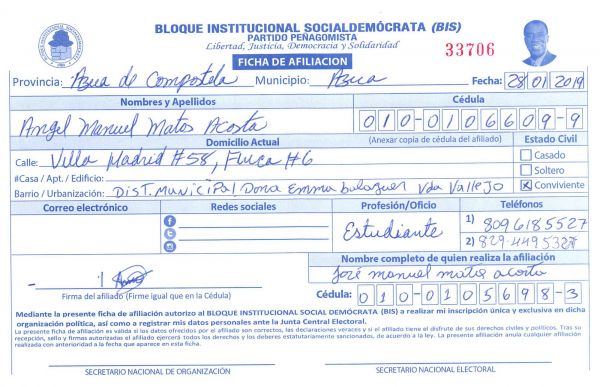 BLOQUE INSTITUCIONAL SOCIALDEMÓCRATA (BIS)
PARTIDO PEÑAGOMISTA
Libertad, Justicia, Democracia y Solidaridad
33706
FICHA DE AFILIACION
Provincia: Azua de Compostela Municipio: Azua Fecha: 28/01/2019
Nombres y Apellidos Cédula
Angel Manuel Matos Acosta 010-0106609-9
Domicilio Actual (Anexar copia de cédula del afiliado) Estado Civil
Calle: Villa Madrid #58, Finca #6 Casado
#Casa / Apt. / Edificio: Soltero
Barrio / Urbanización: Dist. Municipal Dona Emma balaguer Vda Vallejo X Conviviente
Correo electrónico Redes sociales Profesión/Oficio Teléfonos
Estudiante 1) 8096185527
2) 829-4495327
Nombre completo de quien realiza la afiliación
José manuel matos acosta
Firma del afiliado (Firme igual que en la Cédula) Cédula: 010-0105698-3
Mediante la presente ficha de afiliación autorizo al BLOQUE INSTITUCIONAL SOCIAL DEMÓCRATA (BIS) a realizar mi inscripción única y exclusiva en dicha
organización política, así como a registrar mis datos personales ante la Junta Central Electoral.
La presente ficha de afiliación es válida si los datos ofrecidos por el afiliado son correctos, las declaraciones veraces y si el afiliado tiene el disfrute de sus derechos civiles y políticos. Tras su
recepción, sello y firmas autorizadas el afiliado ejercerá todos los derechos y los deberes estatutariamente sancionados, de acuerdo a la ley. La presente afiliación anula cualquier afiliación
realizada con anterioridad a la fecha que aparece en esta ficha.
SECRETARIO NACIONAL DE ORGANIZACIÓN SECRETARIO NACIONAL ELECTORAL